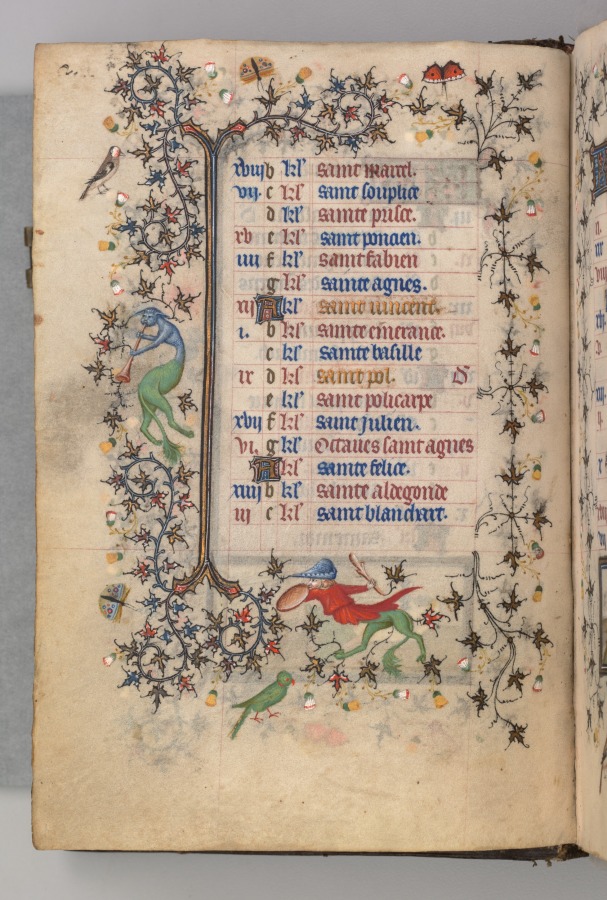 xviij b kl' saint marcel.
vij. c kl' saint souplice
d kl' sainte prisce.
xv e kl' saint poncien.
iiij f kl' saint fabien
g kl' sainte agnes.
xij A kl' saint vincent.
i. b kl' sainte emerance.
c kl' sainte basille
ix d kl' saint pol. D
e kl' saint policarpe
xvij f kl' saint julien.
vi. g kl' Octaves saint agnes
A kl' sainte felice.
xiiij b kl' sainte aldegonde
iij c kl' saint blanchart.